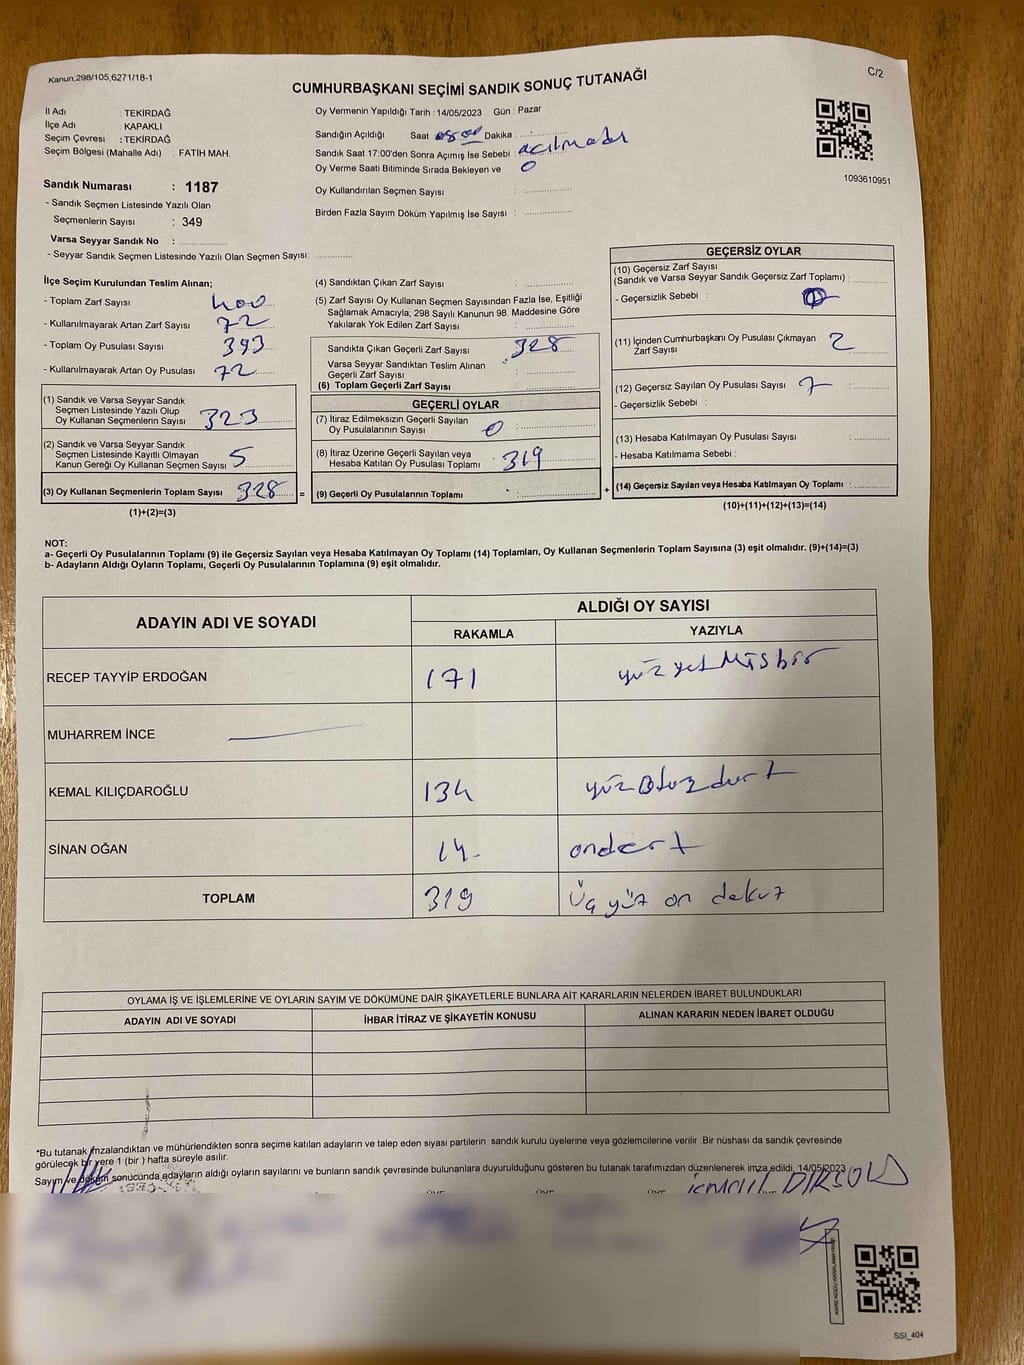 Kanun,298/105,6271/18-1
C/2
CUMHURBAŞKANI SEÇİMİ SANDIK SONUÇ TUTANAĞI
İl Adı : TEKİRDAĞ
İlçe Adı : KAPAKLI
Seçim Çevresi : TEKİRDAĞ
Seçim Bölgesi (Mahalle Adı) : FATİH MAH.
Sandık Numarası : 1187
- Sandık Seçmen Listesinde Yazılı Olan
Seçmenlerin Sayısı : 349
Varsa Seyyar Sandık No :
- Seyyar Sandık Seçmen Listesinde Yazılı Olan Seçmen Sayısı:
Oy Vermenin Yapıldığı Tarih : 14/05/2023 Gün : Pazar
Sandığın Açıldığı Saat Dakika :
Sandık Saat 17:00'den Sonra Açımış İse Sebebi : açılmadı
Oy Verme Saati Bitiminde Sırada Bekleyen ve 0
Oy Kullandırılan Seçmen Sayısı :
Birden Fazla Sayım Döküm Yapılmış İse Sayısı :
1093610951
İlçe Seçim Kurulundan Teslim Alınan;
- Toplam Zarf Sayısı 400
- Kullanılmayarak Artan Zarf Sayısı 72
- Toplam Oy Pusulası Sayısı 393
- Kullanılmayarak Artan Oy Pusulası 72
(1) Sandık ve Varsa Seyyar Sandık
Seçmen Listesinde Yazılı Olup
Oy Kullanan Seçmenlerin Sayısı 323
(2) Sandık ve Varsa Seyyar Sandık
Seçmen Listesinde Kayıtlı Olmayan
Kanun Gereği Oy Kullanan Seçmen Sayısı 5
(3) Oy Kullanan Seçmenlerin Toplam Sayısı 328 =
(1)+(2)=(3)
(4) Sandıktan Çıkan Zarf Sayısı :
(5) Zarf Sayısı Oy Kullanan Seçmen Sayısından Fazla İse, Eşitliği
Sağlamak Amacıyla, 298 Sayılı Kanunun 98. Maddesine Göre
Yakılarak Yok Edilen Zarf Sayısı :
Sandıkta Çıkan Geçerli Zarf Sayısı : 328
Varsa Seyyar Sandıktan Teslim Alınan
Geçerli Zarf Sayısı :
(6) Toplam Geçerli Zarf Sayısı :
GEÇERLİ OYLAR
(7) İtiraz Edilmeksizin Geçerli Sayılan
Oy Pusulalarının Sayısı 0 :
(8) İtiraz Üzerine Geçerli Sayılan veya
Hesaba Katılan Oy Pusulası Toplamı : 319
(9) Geçerli Oy Pusulalarının Toplamı : +
GEÇERSİZ OYLAR
(10) Geçersiz Zarf Sayısı
(Sandık ve Varsa Seyyar Sandık Geçersiz Zarf Toplamı) :
- Geçersizlik Sebebi :
(11) İçinden Cumhurbaşkanı Oy Pusulası Çıkmayan
Zarf Sayısı 2
(12) Geçersiz Sayılan Oy Pusulası Sayısı 7 :
- Geçersizlik Sebebi :
(13) Hesaba Katılmayan Oy Pusulası Sayısı :
- Hesaba Katılmama Sebebi :
(14) Geçersiz Sayılan veya Hesaba Katılmayan Oy Toplamı :
(10)+(11)+(12)+(13)=(14)
NOT:
a- Geçerli Oy Pusulalarının Toplamı (9) ile Geçersiz Sayılan veya Hesaba Katılmayan Oy Toplamı (14) Toplamları, Oy Kullanan Seçmenlerin Toplam Sayısına (3) eşit olmalıdır. (9)+(14)=(3)
b- Adayların Aldığı Oyların Toplamı, Geçerli Oy Pusulalarının Toplamına (9) eşit olmalıdır.
ADAYIN ADI VE SOYADI
ALDIĞI OY SAYISI
RAKAMLA YAZIYLA
RECEP TAYYİP ERDOĞAN 171 yüz yetmiş bir
MUHARREM İNCE
KEMAL KILIÇDAROĞLU 134 yüz otuz dört
SİNAN OĞAN 14 ondört
TOPLAM 319 Üç yüz on dokuz
OYLAMA İŞ VE İŞLEMLERİNE VE OYLARIN SAYIM VE DÖKÜMÜNE DAİR ŞİKAYETLERLE BUNLARA AİT KARARLARIN NELERDEN İBARET BULUNDUKLARI
ADAYIN ADI VE SOYADI İHBAR İTİRAZ VE ŞİKAYETİN KONUSU ALINAN KARARIN NEDEN İBARET OLDUĞU
*Bu tutanak imzalandıktan ve mühürlendikten sonra seçime katılan adayların ve talep eden siyasi partilerin sandık kurulu üyelerine veya gözlemcilerine verilir. Bir nüshası da sandık çevresinde
görülecek bir yere 1 (bir) hafta süreyle asılır.
Sayım ve döküm sonucunda adayların aldığı oyların sayılarını ve bunların sandık çevresinde bulunanlara duyurulduğunu gösteren bu tutanak tarafımızdan düzenlenerek imza edildi. 14/05/2023
SSI_404